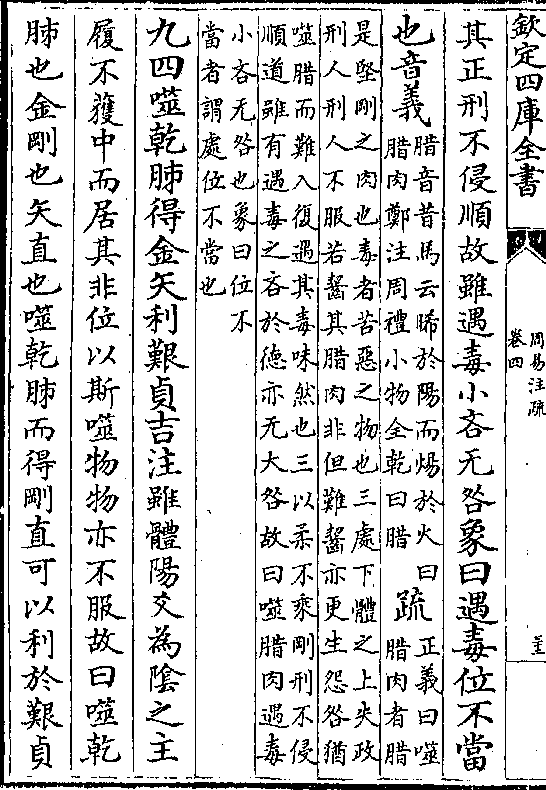 欽定四庫全書
周易注疏
卷四
其正刑不侵順故雖遇毒小吝无咎象曰遇毒位不當
也音義
腊音昔馬云晞於陽而煬於火曰
腊肉鄭注周禮小物全乾曰腊
疏
正義曰噬
腊肉者腊
是堅剛之肉也毒者苦惡之物也三處下體之上失政
刑人刑人不服若齧其腊肉非但難齧亦更生怨咎猶
噬腊而難入復遇其毒味然也三以柔不乘剛刑不侵
順道雖有遇毒之吝於德亦无大咎故曰噬腊肉遇毒
小吝无咎也象曰位不
當者謂處位不當也
九四噬乾胏得金矢利艱貞吉注雖體陽爻為陰之主
履不獲中而居其非位以斯噬物物亦不服故曰噬乾
胏也金剛也矢直也噬乾胏而得剛直可以利於艱貞